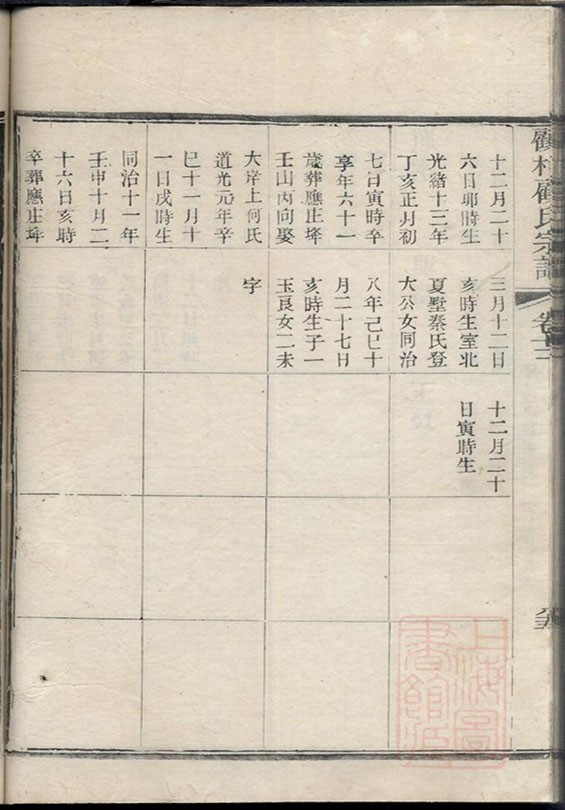 顧氏宗譜
卷十三
十二月二十
六日卯時生
光緒十三年
丁亥正月初
七日寅時卒
享年六十一
歲葬應庄埄
壬山丙向娶
大岸上何氏
道光元年辛
巳十一月十
一日戌時生
同治十一年
壬申十月二
十六日亥時
卒葬應庄埄
三月十二日
亥時生室北
夏墅秦氏登
大公女同治
八年己巳十
月二十七日
亥時生子一
玉良女二未
字
十二月二十
日寅時生
上海圖書館藏